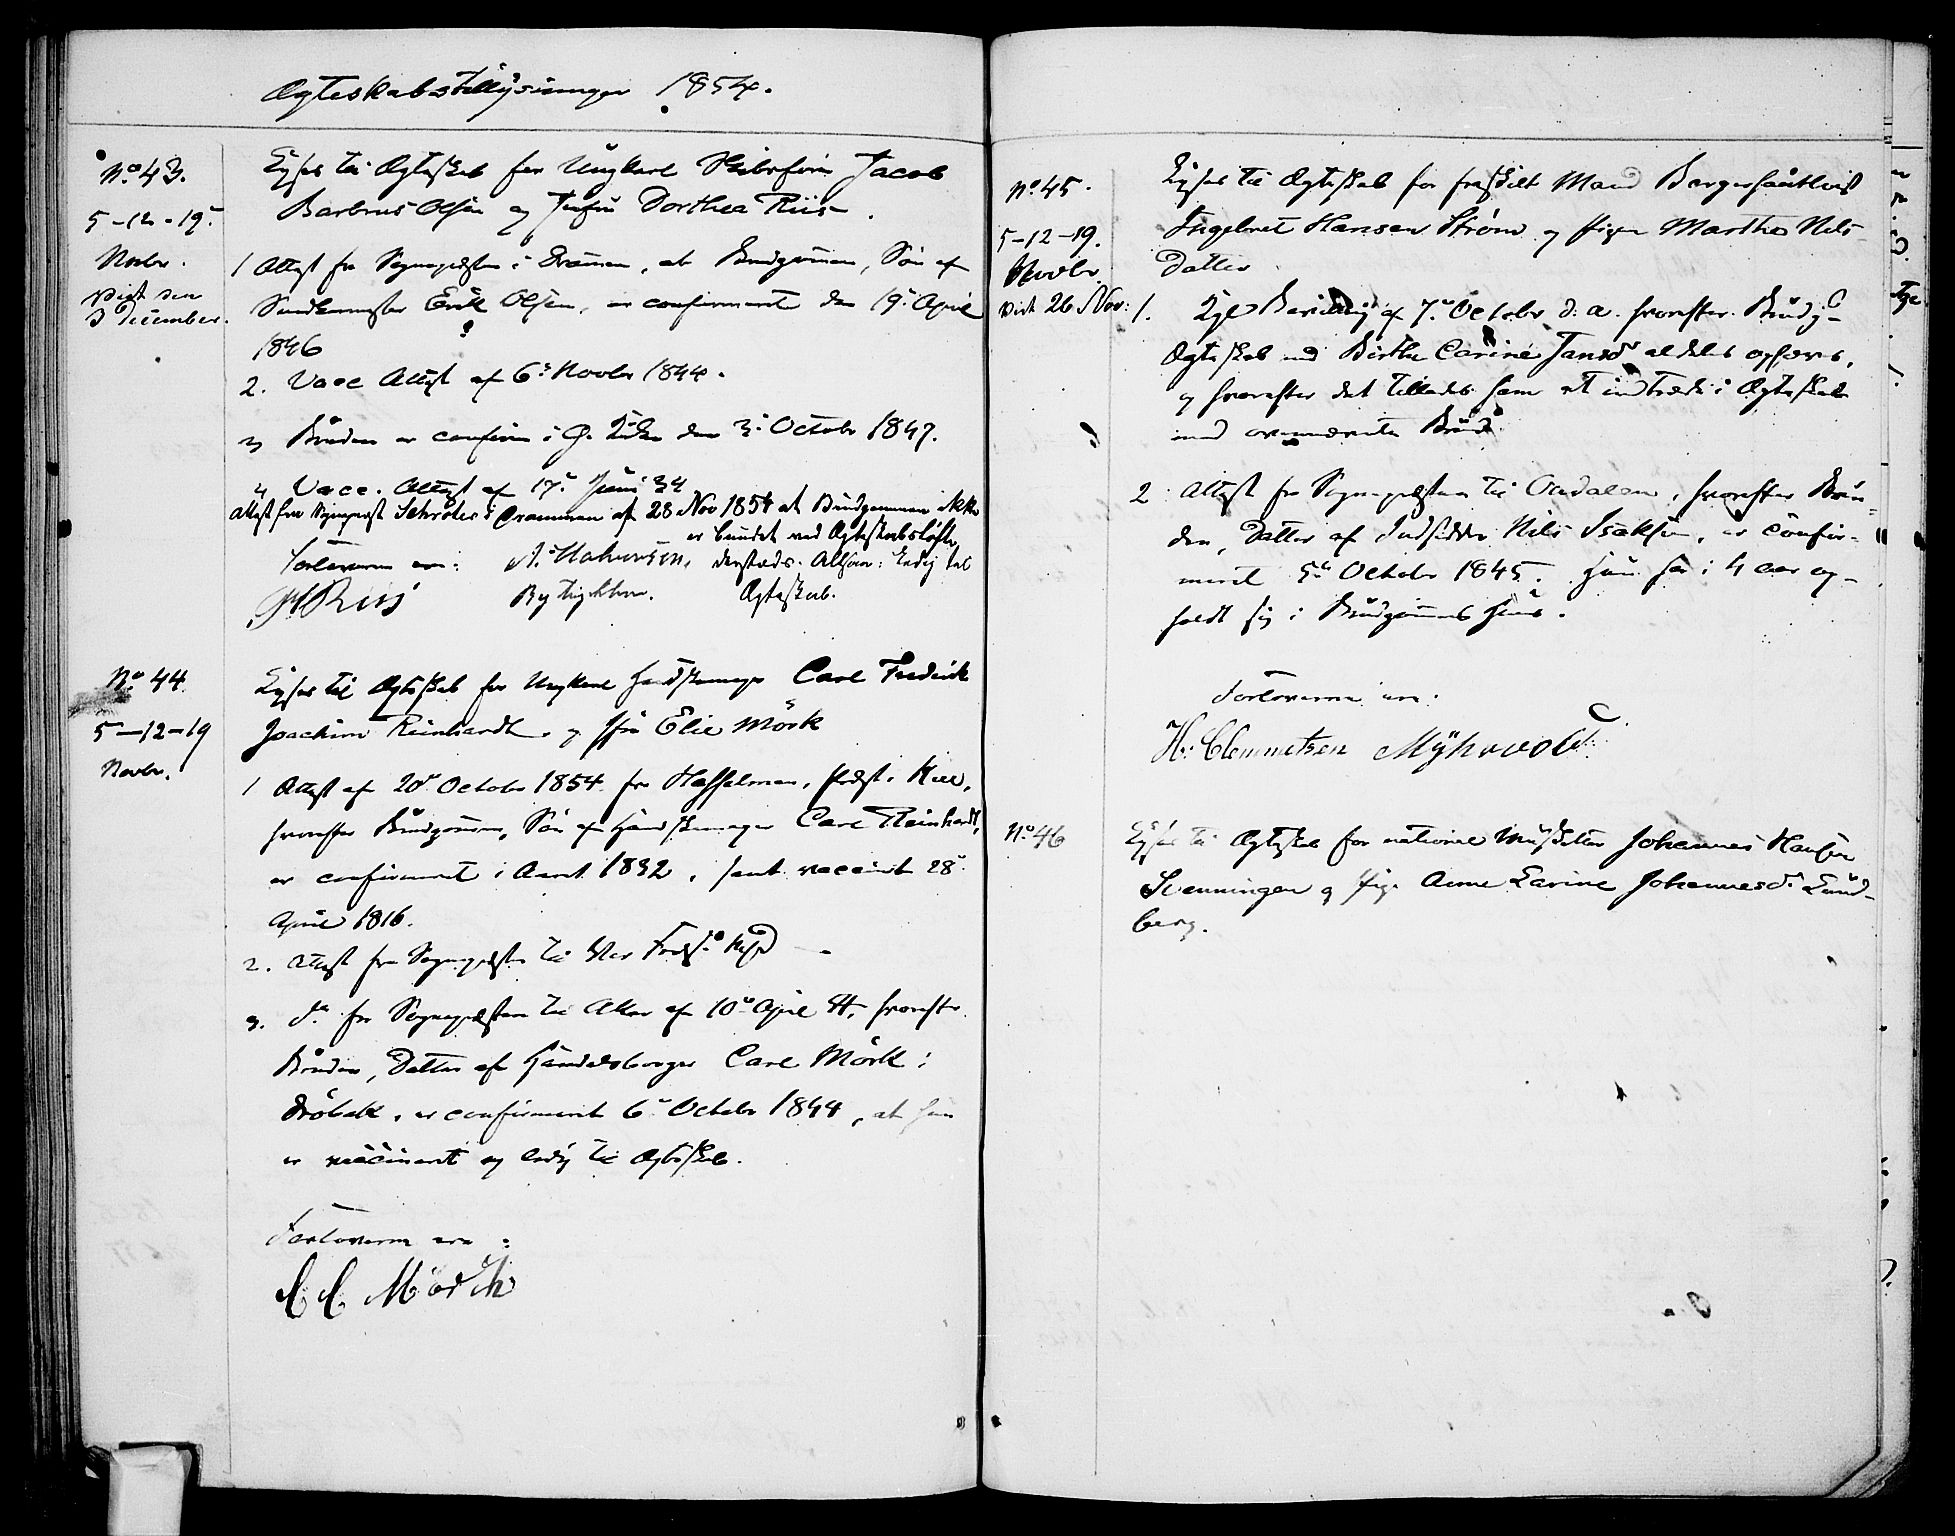 Ægteskabstillysninger 1854.
No 43.
5-12-19.
Novbr.
viet den
3 December.
Lyses til Ægteskab for Ungkarl Skibsfører Jacob
Barbrus Olsen og Jomfru Dorthea Riis.
1 Attest fra Sognepræsten i Drammen, at Brudgommen, Søn af
Erik Olsen, er confirmeret den 19 April
1846
2. Vacc Attest af 6 Novbr 1844.
3 Bruden er confirm i Kirke den 3 October 1847.
4 Vacc. Attest af 17 Juni 34
Attest fra Sognepræst Schröter i Drammen af 28 Nov 1854 at Brudgommen ikke
er bundet ved Ægteskabsløfte
dersteds. Altsaa: Ledig til
Ægteskab.
Forloverne ere:
Riis
No 44.
5-12-19
Novbr.
Lyses til Ægteskab for Ungkarl Handskemager Carl Frederik
Joachim Reinhardt og Jfr Elie Mörk
1 Attest af 20 October 1854 fra Hasselman, Præst i Kiel,
hvorefter Brudgommen, Søn af Handskemager Carl Reinhardt,
er confirmeret i Aaret 1832, samt vaccineret 28
April 1816.
2. Attest fra Sognepræsten til
3. do fra Sognepræsten til Aker af 10 April 44, hvorefter
Bruden, Datter af Handelsborger Carl Mörk i
Dröbak, er confirmeret 6 October 1844, at hun
er vaccineret og ledig til Ægteskab.
Forloverne ere:
C C Mörch
No 45.
5-12-19.
Novbr.
viet 26 Nov:
Lyses til Ægteskab for fraskilt Mand
Ingebret Hansen Strøm og Pigen Marthe Nils
Datter
1. Kgl Bevilling af 7 October d. a. hvorefter Brudg
Ægteskab med Birthe Carine Jansdr aldeles ophæves,
og hvorefter det tillades ham at indtræde i Ægteskab
med ovennævnte Brud.
2 Attest fra Sognepræsten til Oudalen, hvorefter Bru-
den, Datter af Indsidder Nils Isaksen, er confir-
meret 5 October 1845. Hun har i 4 aar op-
holdt sig i Brudgommens Huus.
Forloverne ere:
H. Clemmetsen Myhrvold
No 46
Lyses til Ægteskab for national Musketer Johannes Hansen
og Pige Anne Larine Johannesdr Lund-
berg.